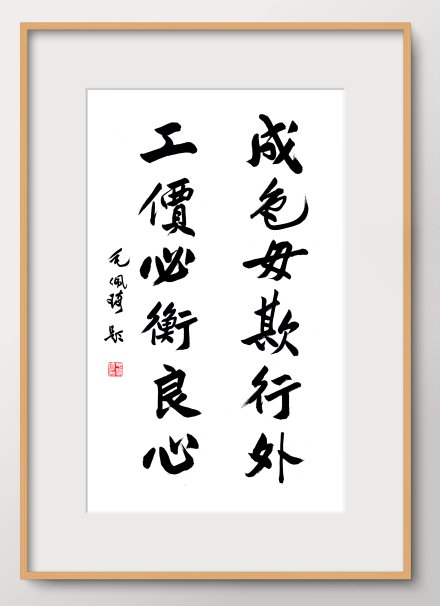 成色毋欺行外
工價必衡良心
毛佩琦 题